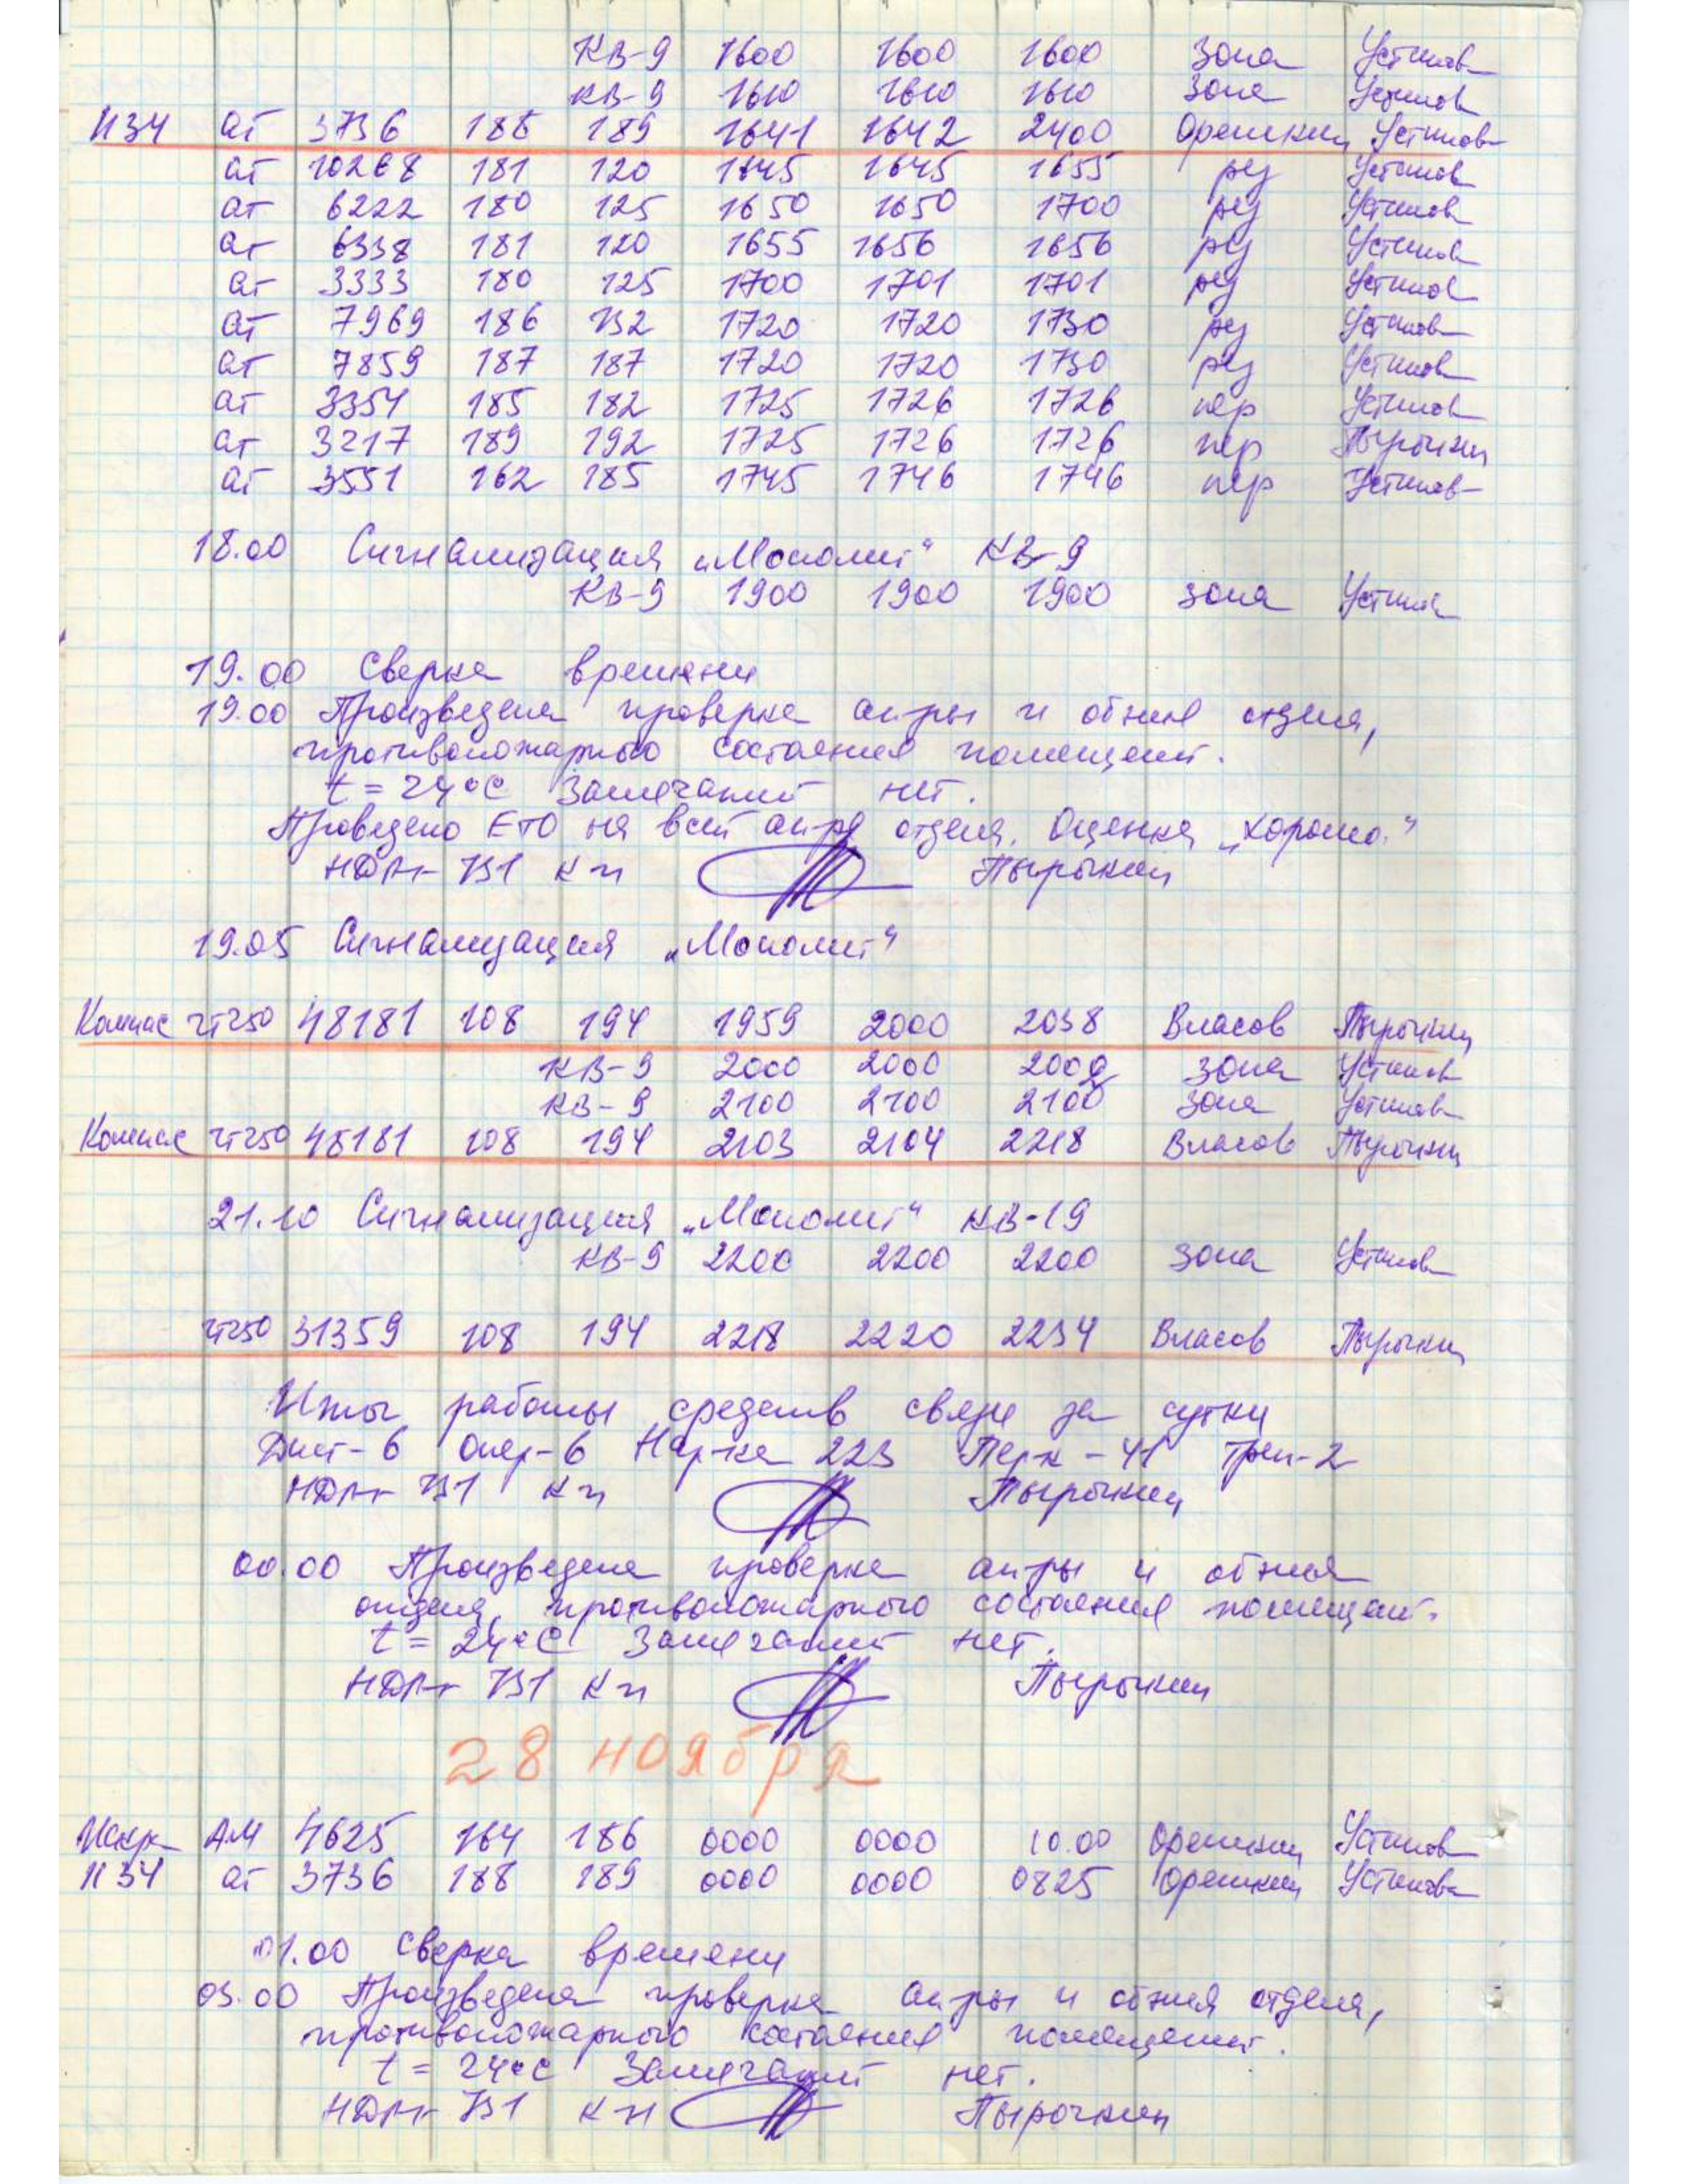 КВ-9 1600 1600 1600 Зона Устинов
КВ-9 1610 1610 1610 Зона Устинов
И34 АТ 3736 188 189 1641 1642 2400 Орешкин Устинов
АТ 10268 181 120 1645 1645 1655 рез Устинов
АТ 6222 180 125 1650 1650 1700 рез Устинов
АТ 6338 181 120 1655 1656 1656 рез Устинов
АТ 3333 180 125 1700 1701 1701 рез Устинов
АТ 7969 186 132 1720 1720 1730 рез Устинов
АТ 7859 187 187 1720 1720 1730 рез Устинов
АТ 3354 185 182 1725 1726 1726 пер Устинов
АТ 3217 189 192 1725 1726 1726 пер Пырочкин
АТ 3551 162 185 1745 1746 1746 пер Устинов
18.00 Сигнализация „Монолит“ КВ-9
КВ-9 1900 1900 1900 зона Устинов
19.00 Сверка времени
19.00 Произведена проверка ап-ры и об-ния отдела,
противопожарного состояния помещений.
t = 24°С Замечаний нет.
Проведено ЕТО на всей ап-ре отдела. Оценка „хорошо.“
131 К-н Пырочкин
19.05 Сигнализация „Монолит“
Компас 48181 108 194 1959 2000 2038 Власов Пырочкин
КВ-9 2000 2000 2000 зона Устинов
КВ-9 2100 2100 2100 зона Устинов
Компас 48181 108 194 2103 2104 2218 Власов Пырочкин
21.10 Сигнализация „Монолит“ КВ-19
КВ-9 2200 2200 2200 зона Устинов
31359 108 194 2218 2220 2234 Власов Пырочкин
Итог работы средств связи за сутки
Дист-6 Опер-6 223 41 Трен-2
131 К-н Пырочкин
00.00 Произведена проверка ап-ры и об-ния
отдела, противопожарного состояния помещений.
t = 24°С Замечаний нет.
131 К-н Пырочкин
28 ноября
Искра АМ 4625 164 186 0000 0000 10.00 Орешкин Устинов
И34 АТ 3736 188 189 0000 0000 0825 Орешкин Устинов
01.00 Сверка времени
03.00 Произведена проверка ап-ры и об-ния отдела,
противопожарного состояния помещений.
t = 24°С Замечаний нет.
131 К-н Пырочкин